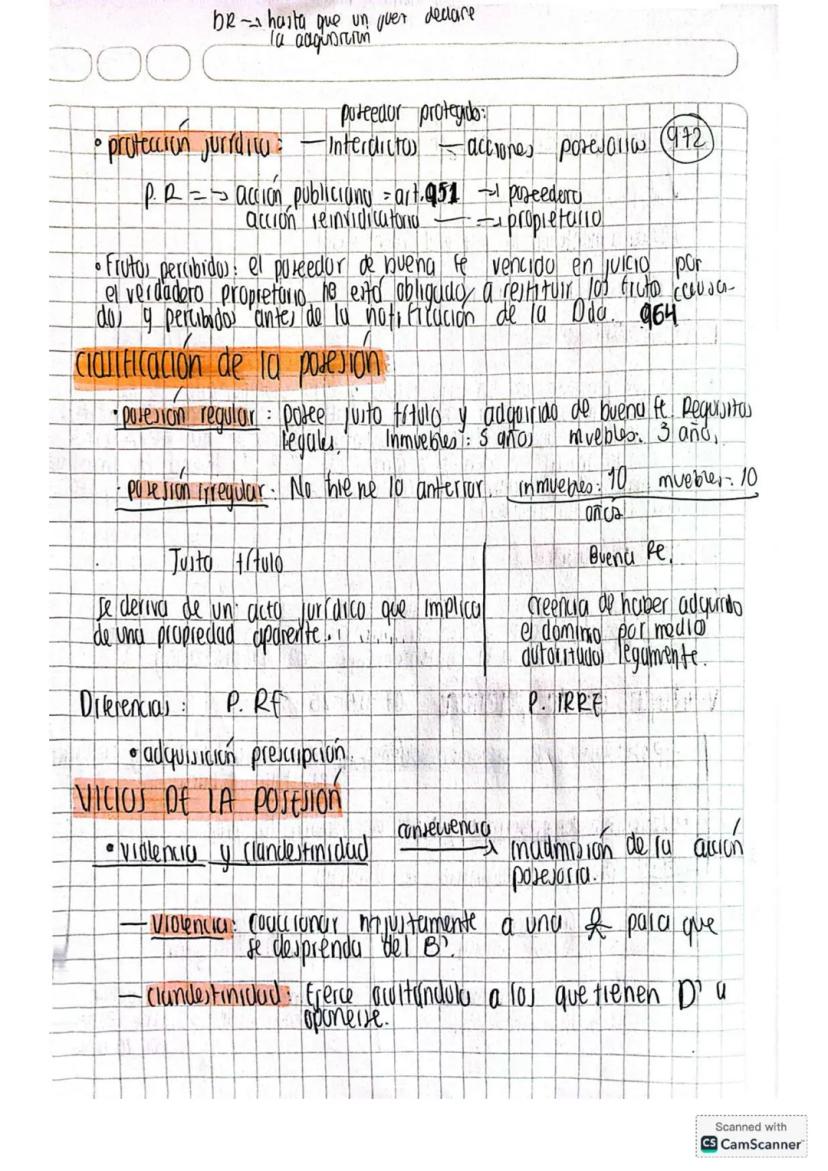 DR → hasta que un juez declare
la adquisición
poseedor protegido:
• protección jurídica: — Interdictos — acciones posesorias 972
P.R = → acción publiciana = art. 951 → poseedora
acción reinvidicatoria — → propietario
• Frutos percibidos: el poseedor de buena fe vencido en juicio por
el verdadero propietario no está obligado a restituir los fruto causa-
dos y percibidos antes de la notificación de la Dda. 964
Clasificación de la posesión
• posesión regular: posee justo título y adquirido de buena fe. Requisitos
legales. Inmuebles: 5 años muebles: 3 años,
• posesión irregular. No tiene lo anterior. inmuebles: 10 muebles: 10
años
Justo título
Buena Fe.
Se deriva de un acto jurídico que implica
de una propiedad aparente.
Creencia de haber adquirido
el dominio por medio
autorizados legamente.
Diferencias: P. RE P. IRRE
• adquisición prescripción.
VICIOS DE LA POSESIÓN
• violencia y clandestinidad consecuencia → inadmisión de la acción
posesoria.
— Violencia: coaccionar injustamente a una para que
se desprenda del B'.
— clandestinidad: Ejerce ocultándola a los que tienen D' a
oponerse.
Scanned with
CS CamScanner